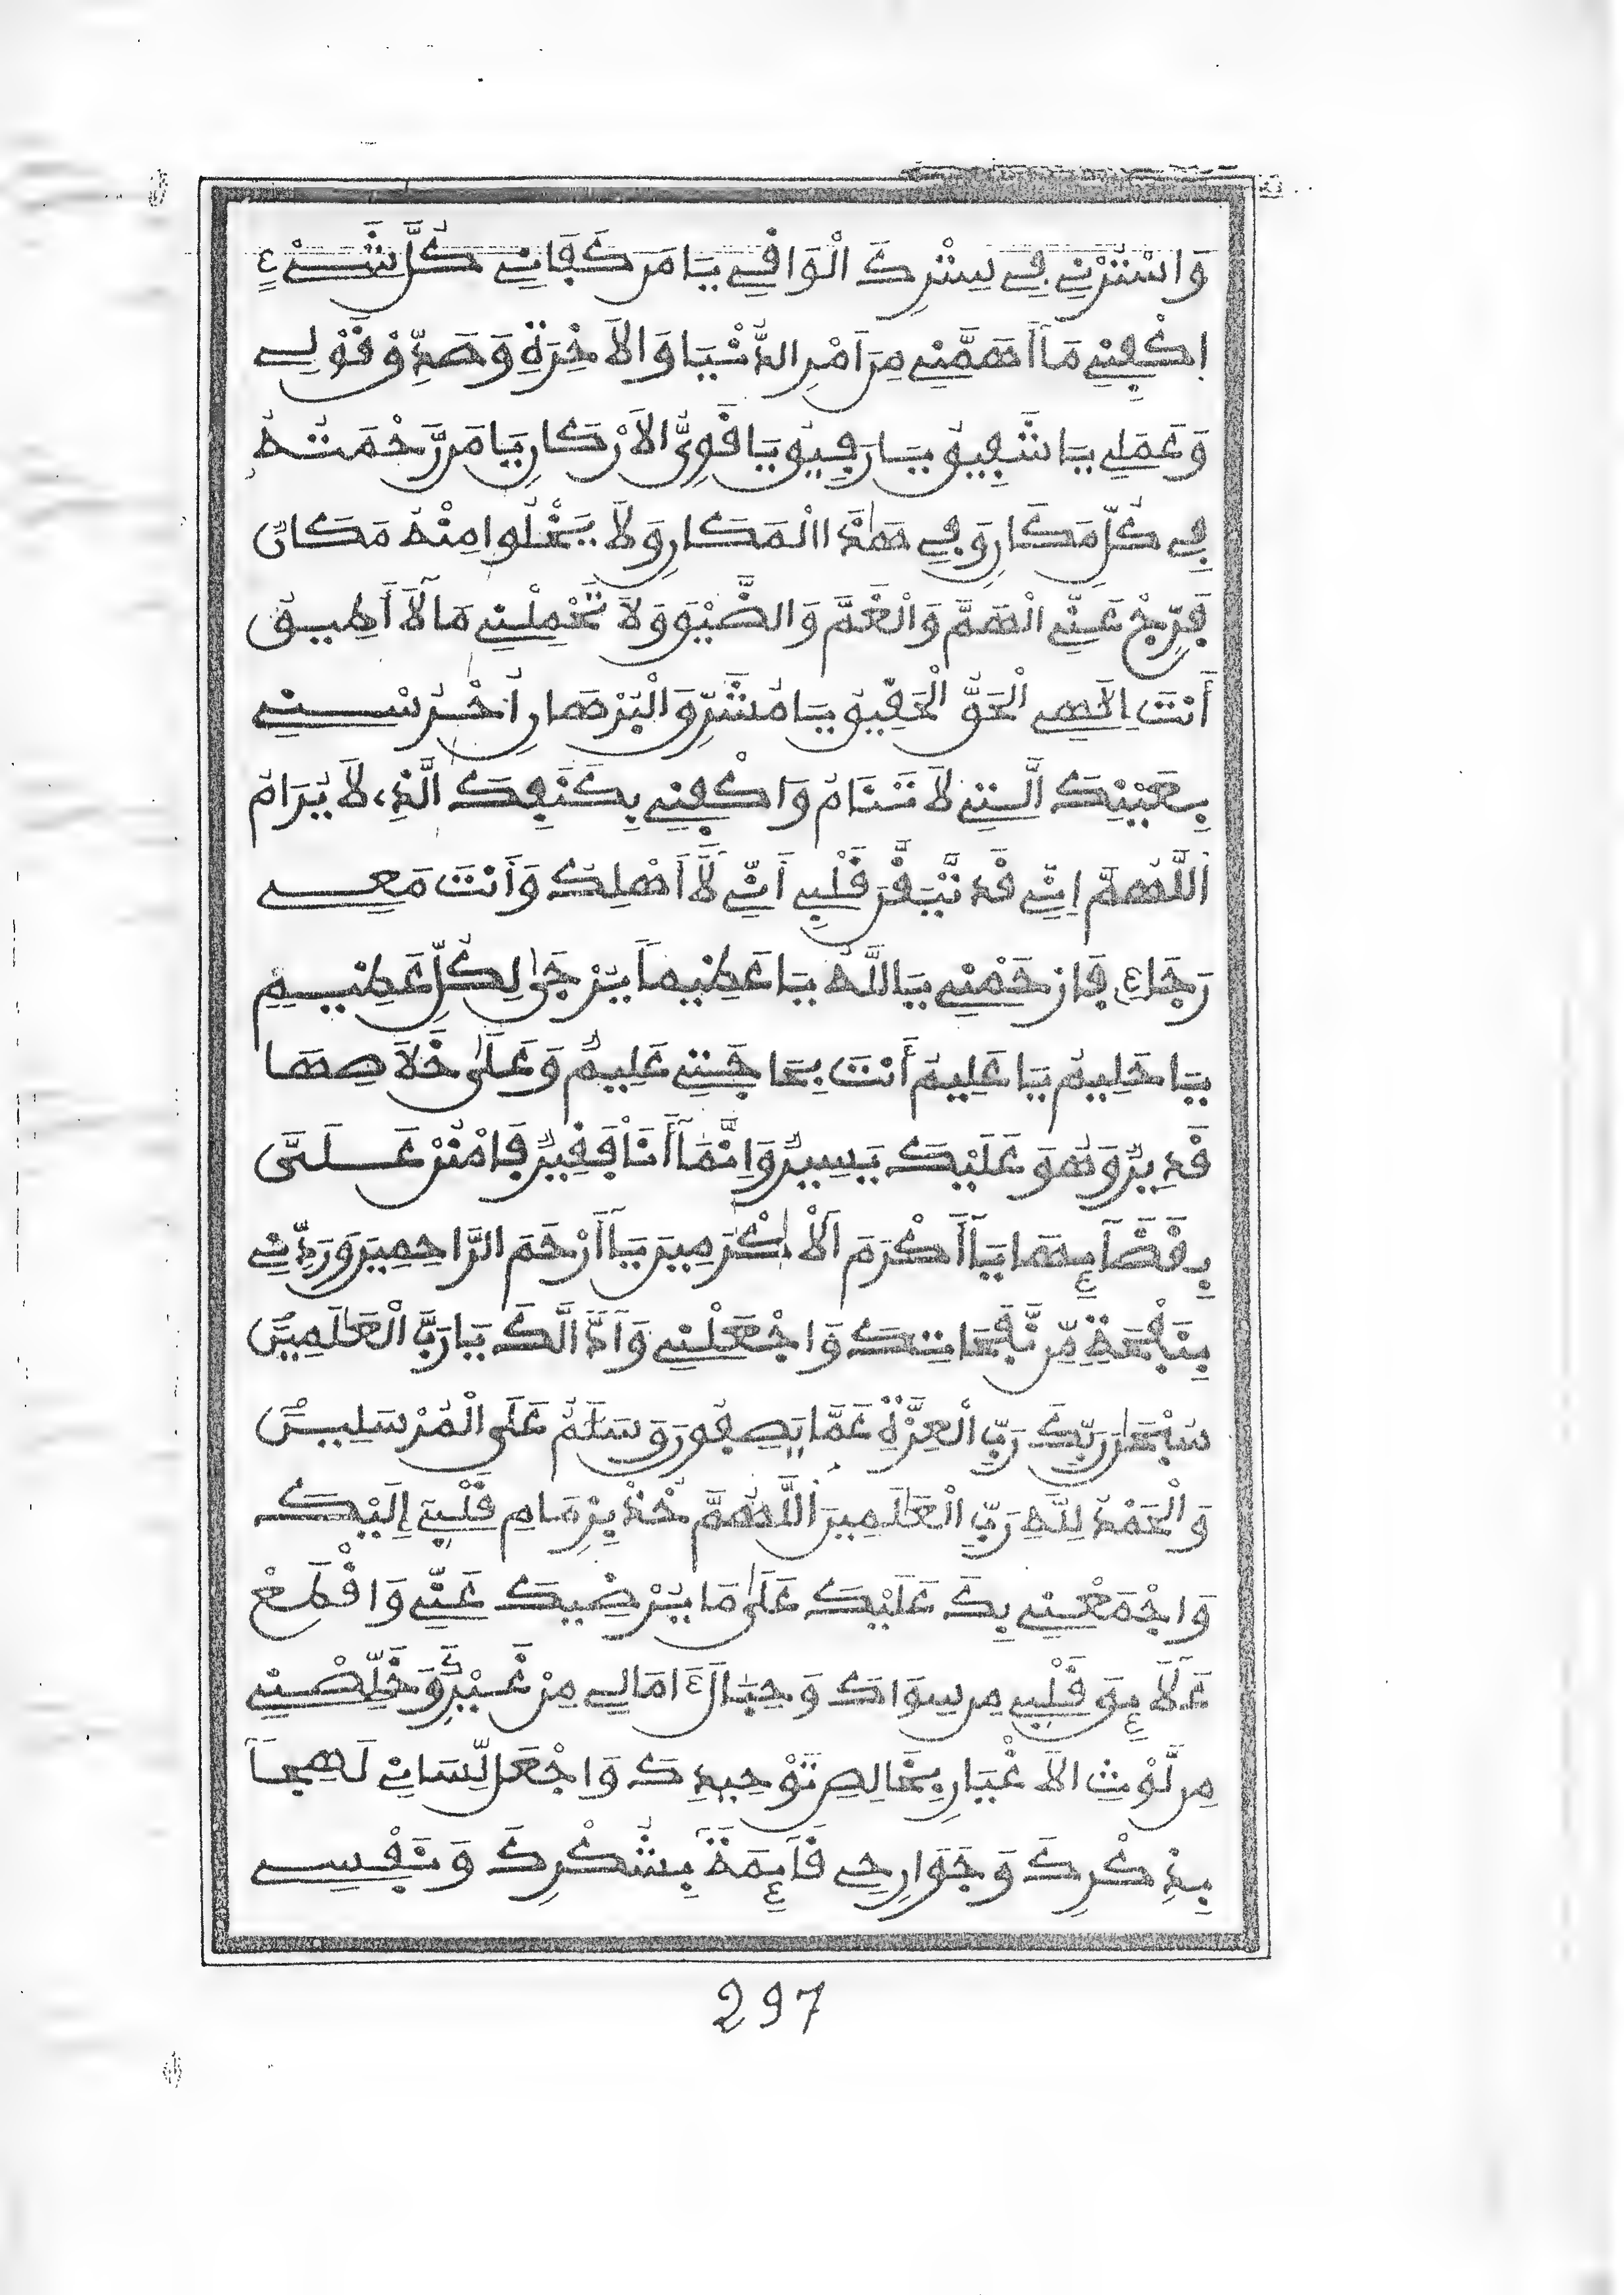 وَاسْتُرْنِي فِي سِتْرِكَ الْوَافِي يَا مَن كَفَانِي كُلَّ شَيْءٍ
اِكْفِنِي مَا أَهَمَّنِي مِنَ امْرِ الدُّنْيَا وَالاَخِرَةِ وَصَدِّقْ قَوْلِي
وَعَمَلِي يَا شَفِيقُ يَا رَفِيقُ يَا قَوِيَّ الاَرْكَانِ يَا مَن رَّحْمَتُهُ
فِي كُلِّ مَكَانٍ وَفِي هَٰذَا الْمَكَانِ وَلاَ يَخْلُوا مِنْهُ مَكَانٌ
فَرِّجْ عَنِّي الْهَمَّ وَالْغَمَّ وَالضِّيْقَ وَلاَ تُحَمِّلْنِي مَا لاَ أُطِيقُ
أَنْتَ اِلَٰهِي الْحَقُّ الْحَقِيقُ يَا مُشْرِقَ الْبُرْهَانِ اُحْرُسْنِي
بِعَيْنِكَ الَّتِي لاَ تَنَامُ وَاكْفِنِي بِكَنَفِكَ الَّذِي لاَ يُرَامُ
اَللَّهُمَّ اِنِّي قَدْ تَّيَقَّنَ قَلْبِي أَنِّي لاَّ أَهْلِكُ وَأَنْتَ مَعِي
رَجَاءِ فَارْحَمْنِي يَا اللَّهُ يَا عَظِيماً يُرْجَىٰ لِكُلِّ عَظِيمٍ
يَا حَلِيمُ يَا عَلِيمُ أَنْتَ بِحَاجَتِي عَلِيمٌ وَعَلَىٰ خَلاَصِهَا
قَدِيرٌ وَهُوَ عَلَيْكَ يَسِيرٌ وَاِنَّمَا أَنَا فَقِيرٌ فَامْنُنْ عَلَيَّ
بِقَضَآئِهَا يَا أَكْرَمَ اَلْاَكْرَمِينَ يَا أَرْحَمَ الرَّاحِمِينَ وَرَبِّنِي
بِنَفْحَةٍ مِّن نَّفَحَاتِكَ وَاجْعَلْنِي وَآدَّالَّكَ يَا رَبَّ الْعَالَمِينَ
سُبْحَٰنَ رَبِّكَ رَبِّ الْعِزَّةِ عَمَّا يَصِفُونَ وَسَلَٰمٌ عَلَى الْمُرْسَلِينَ
وَالْحَمْدُ لِلَّهِ رَبِّ الْعَٰلَمِينَ اَللَّهُمَّ خُذْ بِزِمَامِ قَلْبِي إِلَيْكَ
وَاجْمَعْنِي بِكَ عَلَيْكَ عَلَىٰ مَا يُرْضِيكَ عَنِّي وَاقْطَعْ
عَلاَئِقَ قَلْبِي مِن سِوَاكَ وَحِبَالَ ءَامَالِي مِنْ غَيْرِكَ وَخَلِّصْنِي
مِن لَّوْثِ الاَغْيَارِ بِخَالِصِ تَوْحِيدِكَ وَاجْعَل لِّسَانِي لَهِجاً
بِذِكْرِكَ وَجَوَارِحِي قَآئِمَةً بِشُكْرِكَ وَنَفْسِي
297